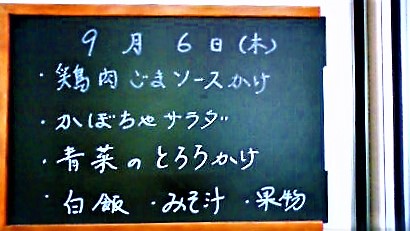 9月6日(木)
・鶏肉ごまソースかけ
・かぼちゃサラダ
・青菜のとろろかけ
・白飯 ・みそ汁 ・果物